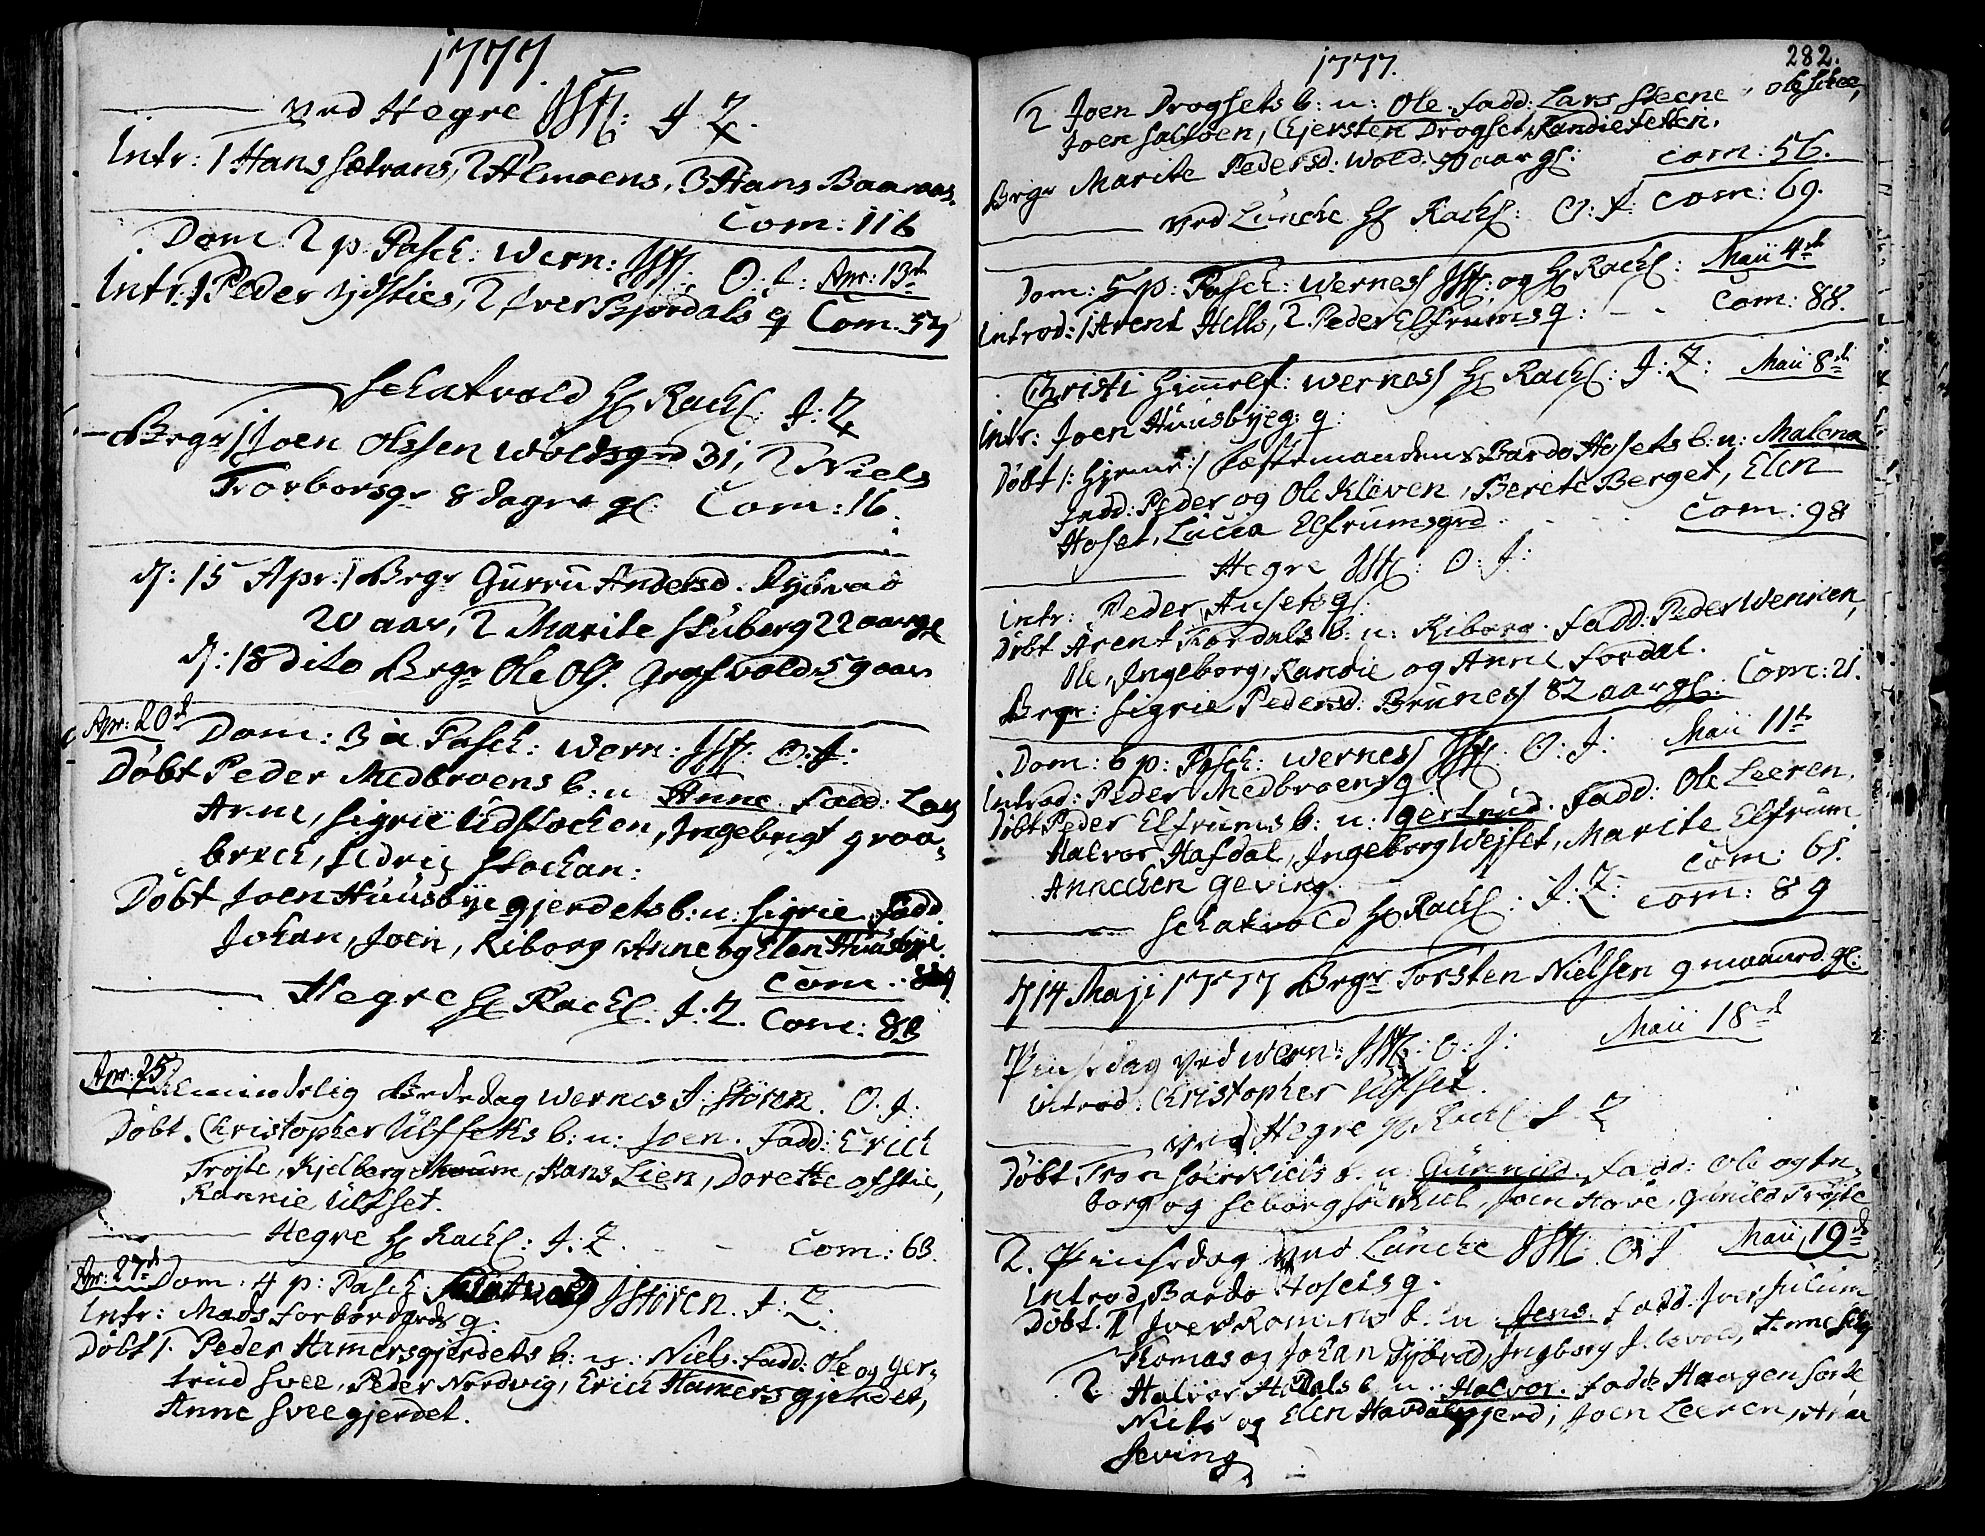 1777.
ved Hegre J: Z.
Intr: 1 Hans sætrans, 2 Almoens, 3 Hans Baaraas.
Com: 116
Dom: 2 p: Pasch: Wern: O: J: Apr: 13d
Intr: 1 Peder ydsties, 2 Iver Bjordals q Com. 54
Schatvold H Rachl: J: Z
Brgr 1 Joen Olssen Woldsgrd 31, 2 Niels
Trorborsgr 8 dagr gl: Com: 16.
d: 15 Apr: 1 Brgr Gurru Andersd. Ryøvao
20 aar, 2 Marite Skuberg 22 aar gl
d: 18 dito Brgr Ole Ols. Grafvold 59 aar
Apr: 20d Dom: 3 a Pasch: Wern: O: J:
Døbt Peder Medbroens b: n Anne. fadd: Lars
Arne, Sigrie Udstochen, Ingebrigt graa-
breck, Sidrig Stochan:
Døbt Joen Huusbÿe gjerdets b: n: Sigrie. fadd.
Johan, Joen, Kiborg Anne og Elen Huusbye.
Com:
Hegre H Rachl: J: Z. Com: 83
Apr: 25 Almindelig Bededag Wernes J: Stören. O: J:
Døbt. Christopher Ulfsets b: n: Joen. Fadd: Erich
Trøjte, Kjelberg Moum, Hans Lien, Dorette ofstie,
Rannie Ulfset.
Hegre H Rachl: J: Z. Com: 63.
Apr: 27d Dom: 4 p: Pasch Schatvold J Stören. J: Z.
Intr: Mads Forbordgrds q.
Døbt 1. Peder Hamersgjerdets b: n: Niels. fadd: Ole og Ger-
trud Svee, Peder Nordvig, Erich Hamersgjerdet,
Anne Sveegjerdet.
1777.
282.
2 Joen Drogsets b: n: Ole. fadd: Lars Steene, Ole Schee,
Joen Saltoen, Kjersten Drogset, Randie Teten.
Brgr Marite Pedersd: Wold. aar gl: Com: 56.
ved Lüncke H Rachl: O: J: Com: 69.
Dom: 5 p: Pasch: Wernes og H Rachl: Maii 4d
Introd: 1 Arent Hells, 2. Peder Elfrums q: Com: 88.
Christi Himmelf: Wernes H Rachl: J: Z: Maii 8d
Intr: Joen Huusbyeg: q:
Døbt 1: Hjeme: Fæstemandens Bardo Hosets b: n: Malena
fadd: Peder og Ole Klöven, Berete Berget, Elen
Hoset, Lucia Elfrumsgrd. Com: 98
Hegre O: J:
Intr: Peder Ausets q:
Døbt Arent Fordals b: n: Kiborg. fadd: Peder Wennen,
Ole, Ingeborg, Randie og Anne Fordal.
Brgr: Sigrie Pedersd: Brunes 82 aar gl. Com: 21.
Dom: 6 p: Pasch: Wernes O: J: Maii 11t
Introd: Peder Medbroens q
Døbt Peder Elfrums b: n: Gertrud. fadd: Ole Leeren.
Halvor Hafdal, Ingeborg Wejset, Marite Elfrum
Annechen Geving. Com: 65.
Schatvold H Rachl: J: Z: Com: 89
d 14 Maji 1777 Brgr Torsten Nielsen 9 maaned. gl:
Pinsedag ved Wern: O: J: Maii 18d
Introd: Christopher Ulfset.
ved Hegre H. Rachl. J: Z
Døbt Tron b: n: Gunnild. fadd: Ole og In-
borg og Seborg Joen Hove, Gunild Trøjte
2. Pinsedag ved Lüncke O: J Maii 19d
Introd, Bardo Hosets q.
Døbt. 1 Iver b: n: Jens. fadd. Iver Julum
Thomas og Johan Ingborg Anne
2 Halvor b: n: Halvor. fadd: Haagen
Niels og Elen Joen Leeren,
Geving